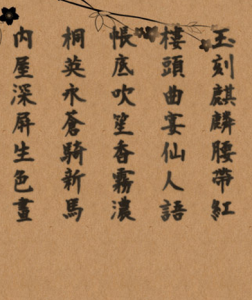 玉刻麒麟腰帶紅
樓頭曲宴仙人語
帳底吹笙香霧濃
桐英永蒼騎新馬
內屋深屏生色畫